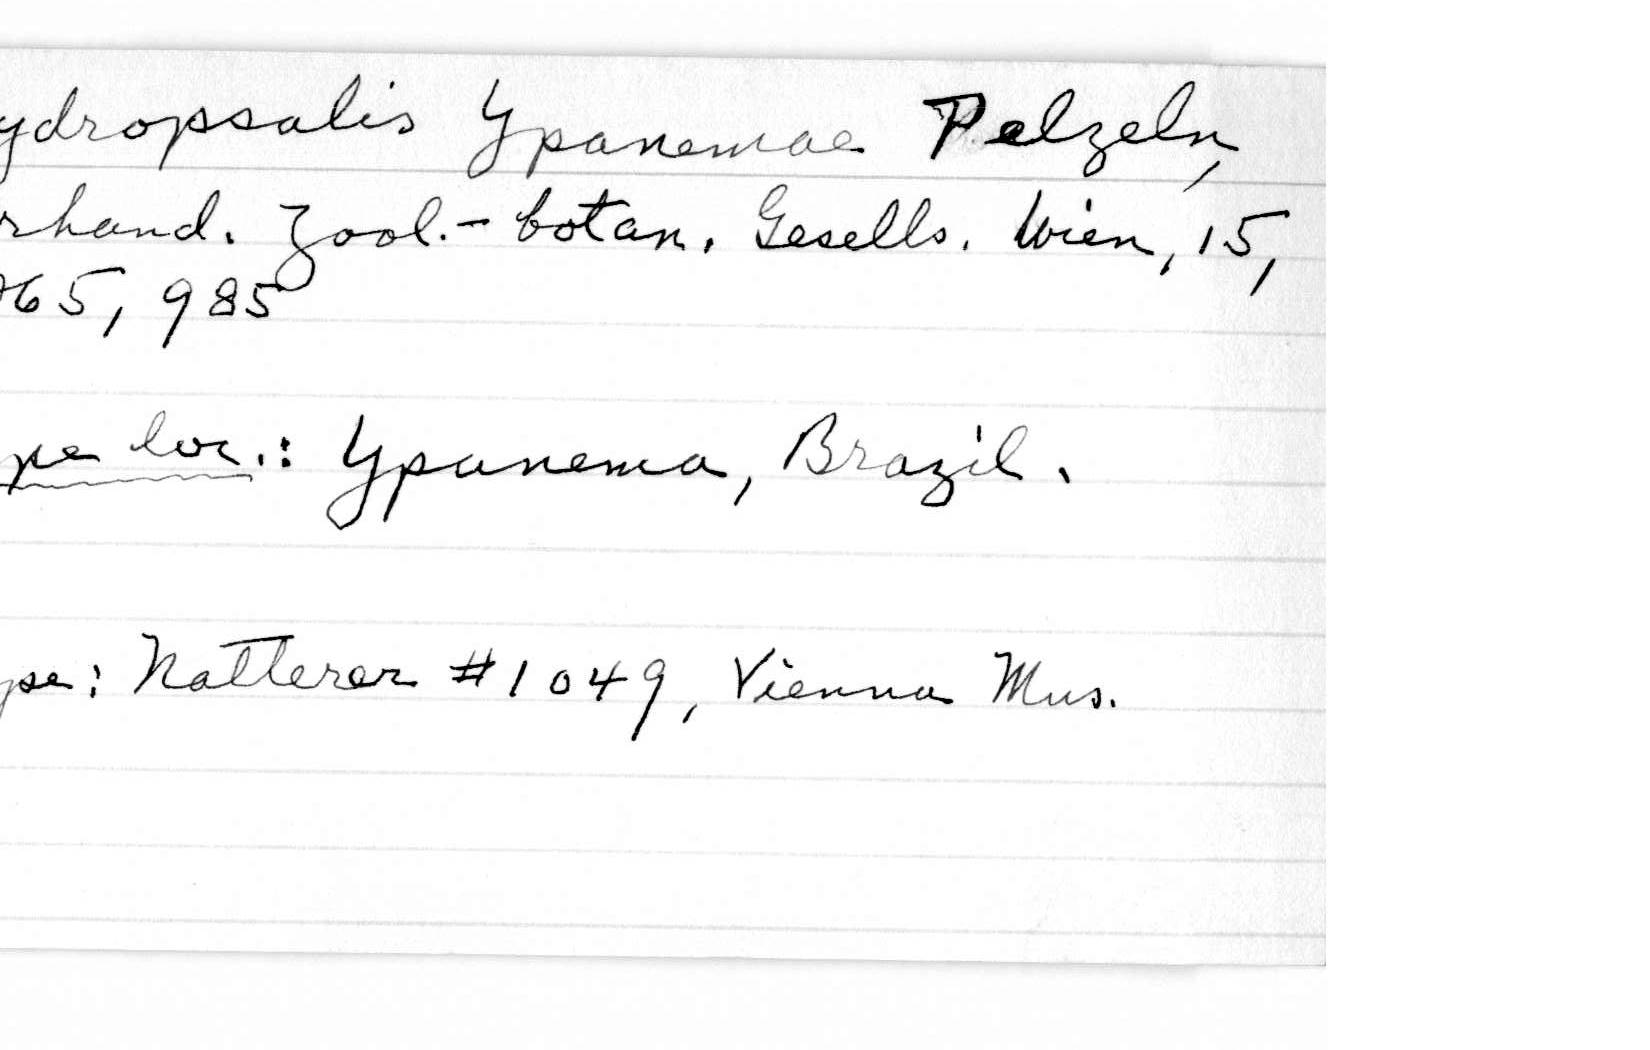 ydropsalis Ypanemae Pelzeln,
rhand. Zool.-botan. Gesells. Wien, 15,
65, 985
pe loc.: Ypanema, Brazil.
pe: Natterer #1049, Vienna Mus.